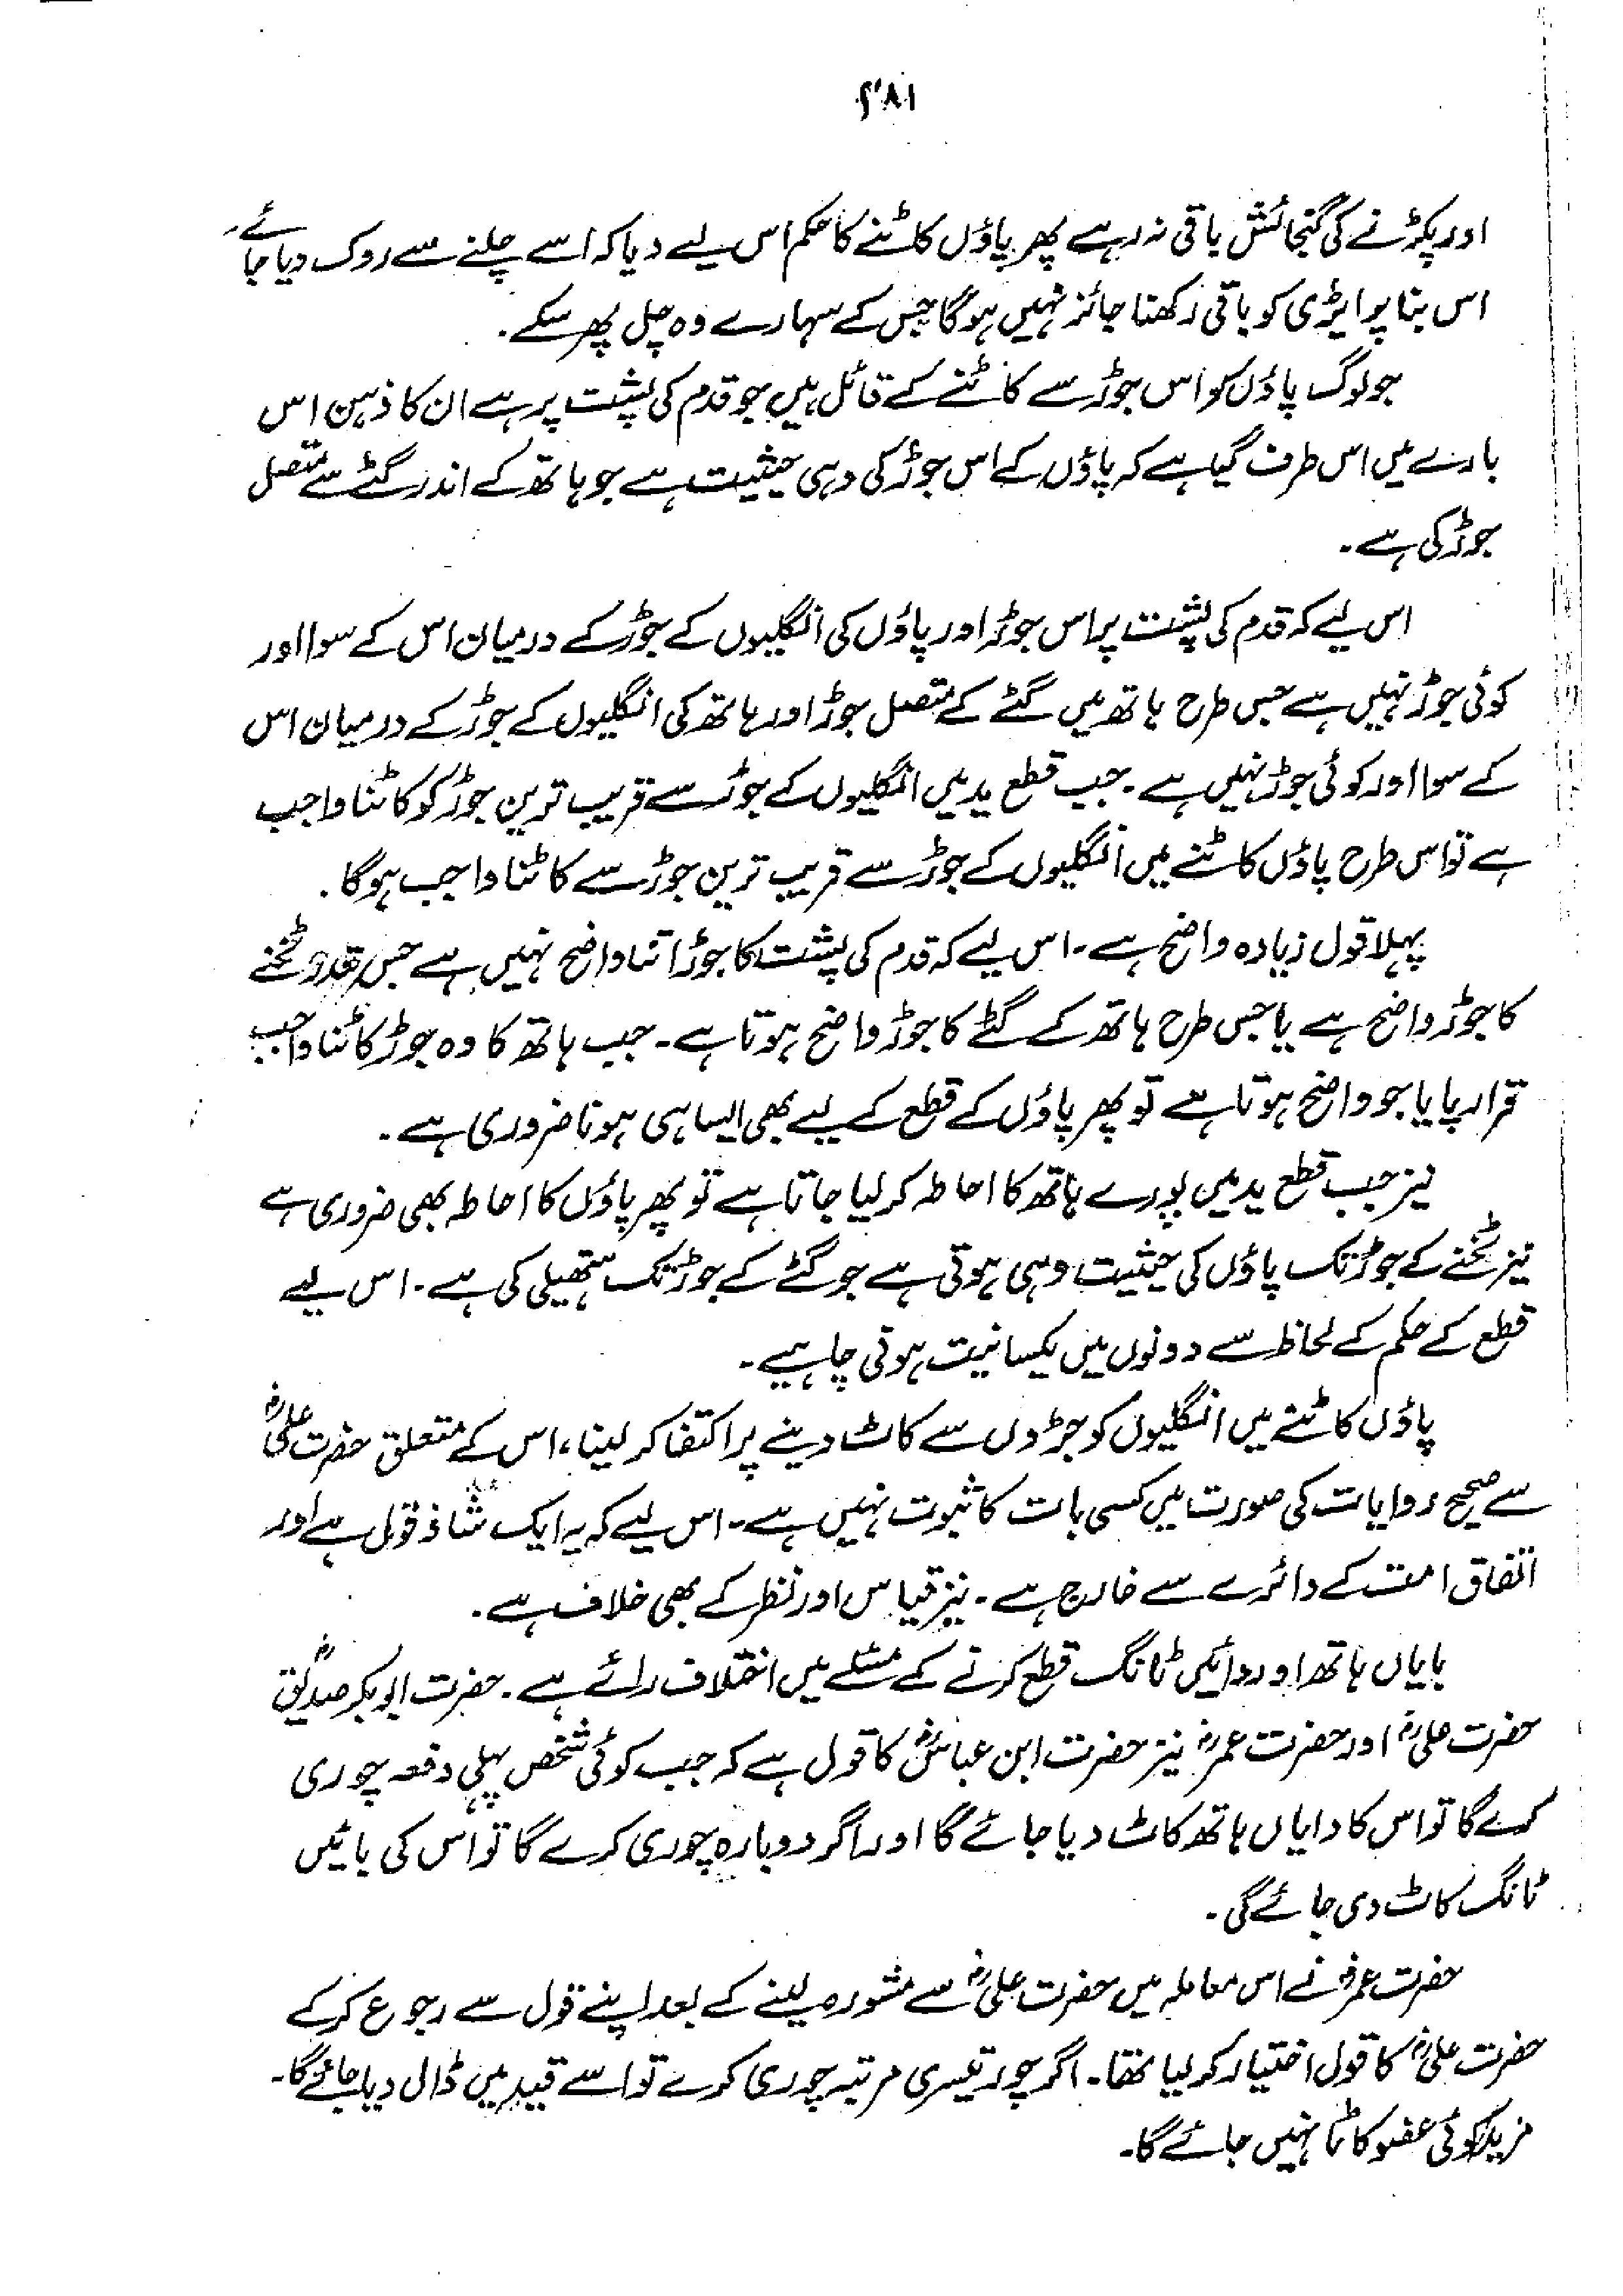 اور پکڑنے کی گنجائش باقی نہ رہے پھر پاؤں کاٹنے کا حکم اس لیے دیا کہ اسے چلنے سے روک دیا جائے
اس بنا پر ایڑی کو باقی رکھنا جائز نہیں ہوگا جس کے سہارے وہ چل پھر سکے۔
جو لوگ پاؤں کو اس جوڑ سے کاٹنے کے قائل ہیں جو قدم کی پشت پر ہے ان کا ذہن اس
بارے میں اس طرف گیا ہے کہ پاؤں کے اس جوڑ کی وہی حیثیت ہے جو ہاتھ کے اندر گٹے سے متصل
جوڑ کی ہے۔
اس لیے کہ قدم کی پشت پر اس جوڑ اور پاؤں کی انگلیوں کے جوڑ کے درمیان اس کے سوا اور
کوئی جوڑ نہیں ہے جس طرح ہاتھ میں گٹے کے متصل جوڑ اور ہاتھ کی انگلیوں کے جوڑ کے درمیان اس
کے سوا اور کوئی جوڑ نہیں ہے۔ جب قطع ید میں انگلیوں کے جوڑ سے قریب ترین جوڑ کو کاٹنا واجب
ہے تو اس طرح پاؤں کاٹنے میں انگلیوں کے جوڑ سے قریب ترین جوڑ سے کاٹنا واجب ہوگا۔
پہلا قول زیادہ واضح ہے۔ اس لیے کہ قدم کی پشت کا جوڑ اتنا واضح نہیں ہے جس قدر ٹخنے
کا جوڑ واضح ہے یا جس طرح ہاتھ کے گٹے کا جوڑ واضح ہوتا ہے۔ جب ہاتھ کا وہ جوڑ کاٹنا واجب
قرار پایا جو واضح ہوتا ہے تو پھر پاؤں کے قطع کے لیے بھی ایسا ہی ہونا ضروری ہے۔
نیز جب قطع ید میں پورے ہاتھ کا احاطہ کر لیا جاتا ہے تو پھر پاؤں کا احاطہ بھی ضروری ہے
نیز ٹخنے کے جوڑ تک پاؤں کی حیثیت وہی ہوتی ہے جو گٹے کے جوڑ تک ہتھیلی کی ہے۔ اس لیے
قطع کے حکم کے لحاظ سے دونوں میں یکسانیت ہوتی چاہیے۔
پاؤں کاٹنے میں انگلیوں کو جڑوں سے کاٹ دینے پر اکتفا کر لینا، اس کے متعلق حضرت علیؓ
سے صحیح روایات کی صورت میں کسی بات کا ثبوت نہیں ہے۔ اس لیے کہ یہ ایک شاذ قول ہے اور
اتفاق امت کے دائرے سے خارج ہے۔ نیز قیاس اور نظر کے بھی خلاف ہے۔
بایاں ہاتھ اور دائیں ٹانگ قطع کرنے کے مسئلے میں اختلاف رائے ہے۔ حضرت ابوبکر صدیقؓ
حضرت علیؓ اور حضرت عمرؓ نیز حضرت ابن عباسؓ کا قول ہے کہ جب کوئی شخص پہلی دفعہ چوری
کرے گا تو اس کا دایاں ہاتھ کاٹ دیا جائے گا اور اگر دوبارہ چوری کرے گا تو اس کی بائیں
ٹانگ کاٹ دی جائے گی۔
حضرت عمرؓ نے اس معاملہ میں حضرت علیؓ سے مشورہ لینے کے بعد اپنے قول سے رجوع کر کے
حضرت علیؓ کا قول اختیار کر لیا تھا۔ اگر چور تیسری مرتبہ چوری کرے تو اسے قید میں ڈال دیا جائے گا۔
مزید کوئی عضو کاٹا نہیں جائے گا۔